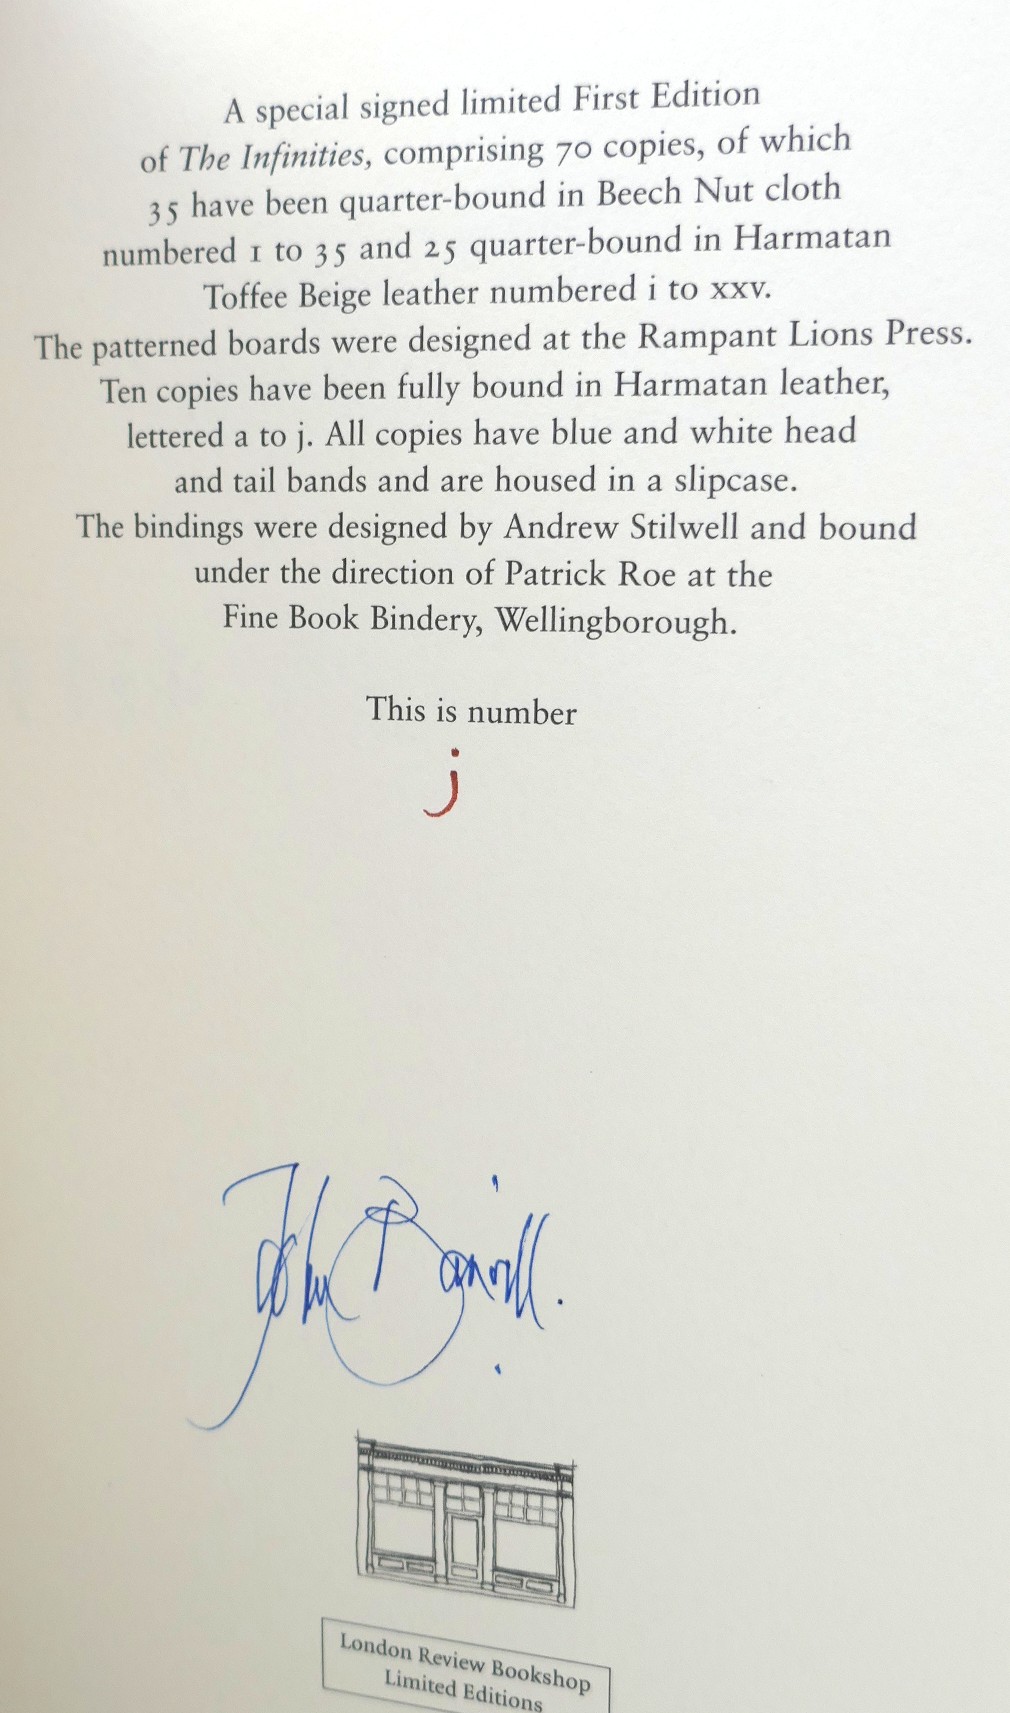 A special signed limited First Edition
of The Infinities, comprising 70 copies, of which
35 have been quarter-bound in Beech Nut cloth
numbered 1 to 35 and 25 quarter-bound in Harmatan
Toffee Beige leather numbered i to xxv.
The patterned boards were designed at the Rampant Lions Press.
Ten copies have been fully bound in Harmatan leather,
lettered a to j. All copies have blue and white head
and tail bands and are housed in a slipcase.
The bindings were designed by Andrew Stilwell and bound
under the direction of Patrick Roe at the
Fine Book Bindery, Wellingborough.
This is number
j
John Banvill.
London Review Bookshop
Limited Editions